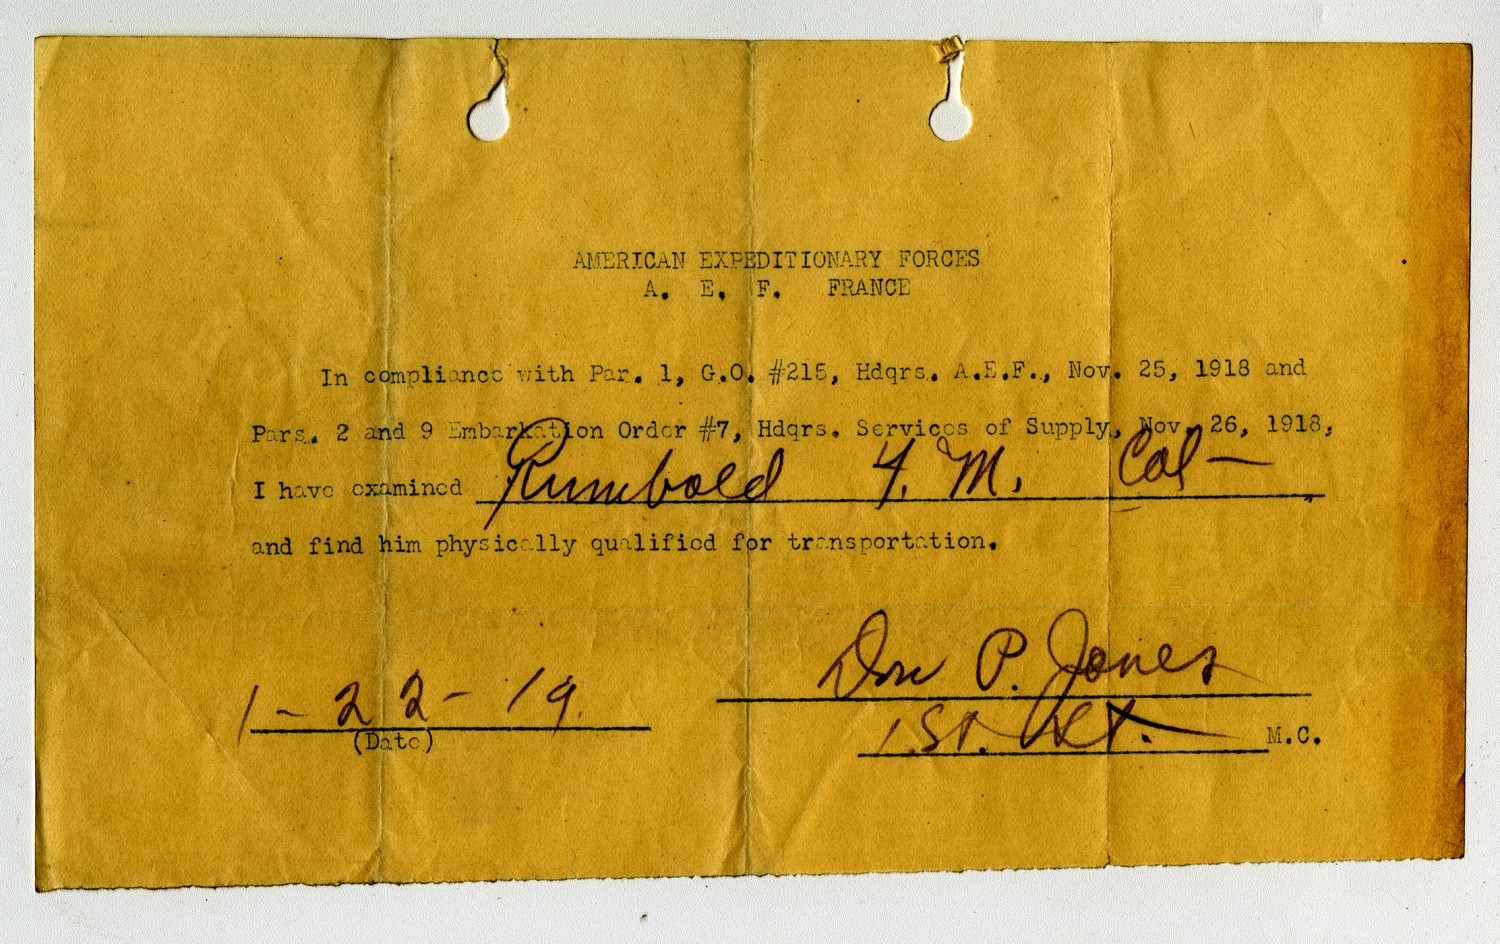 AMERICAN EXPEDITIONARY FORCES
A. E. F. FRANCE
In compliance with Par. 1, G.O. #215, Hdqrs. A.E.F., Nov. 25, 1918 and
Pars. 2 and 9 Embarkation Order #7, Hdqrs. Services of Supply, Nov. 26, 1918,
I have examined Rumbold F. M. Col -
and find him physically qualified for transportation.
Don P. Jones
1-22-19.
1.St. Lt. M.C.
(Date)